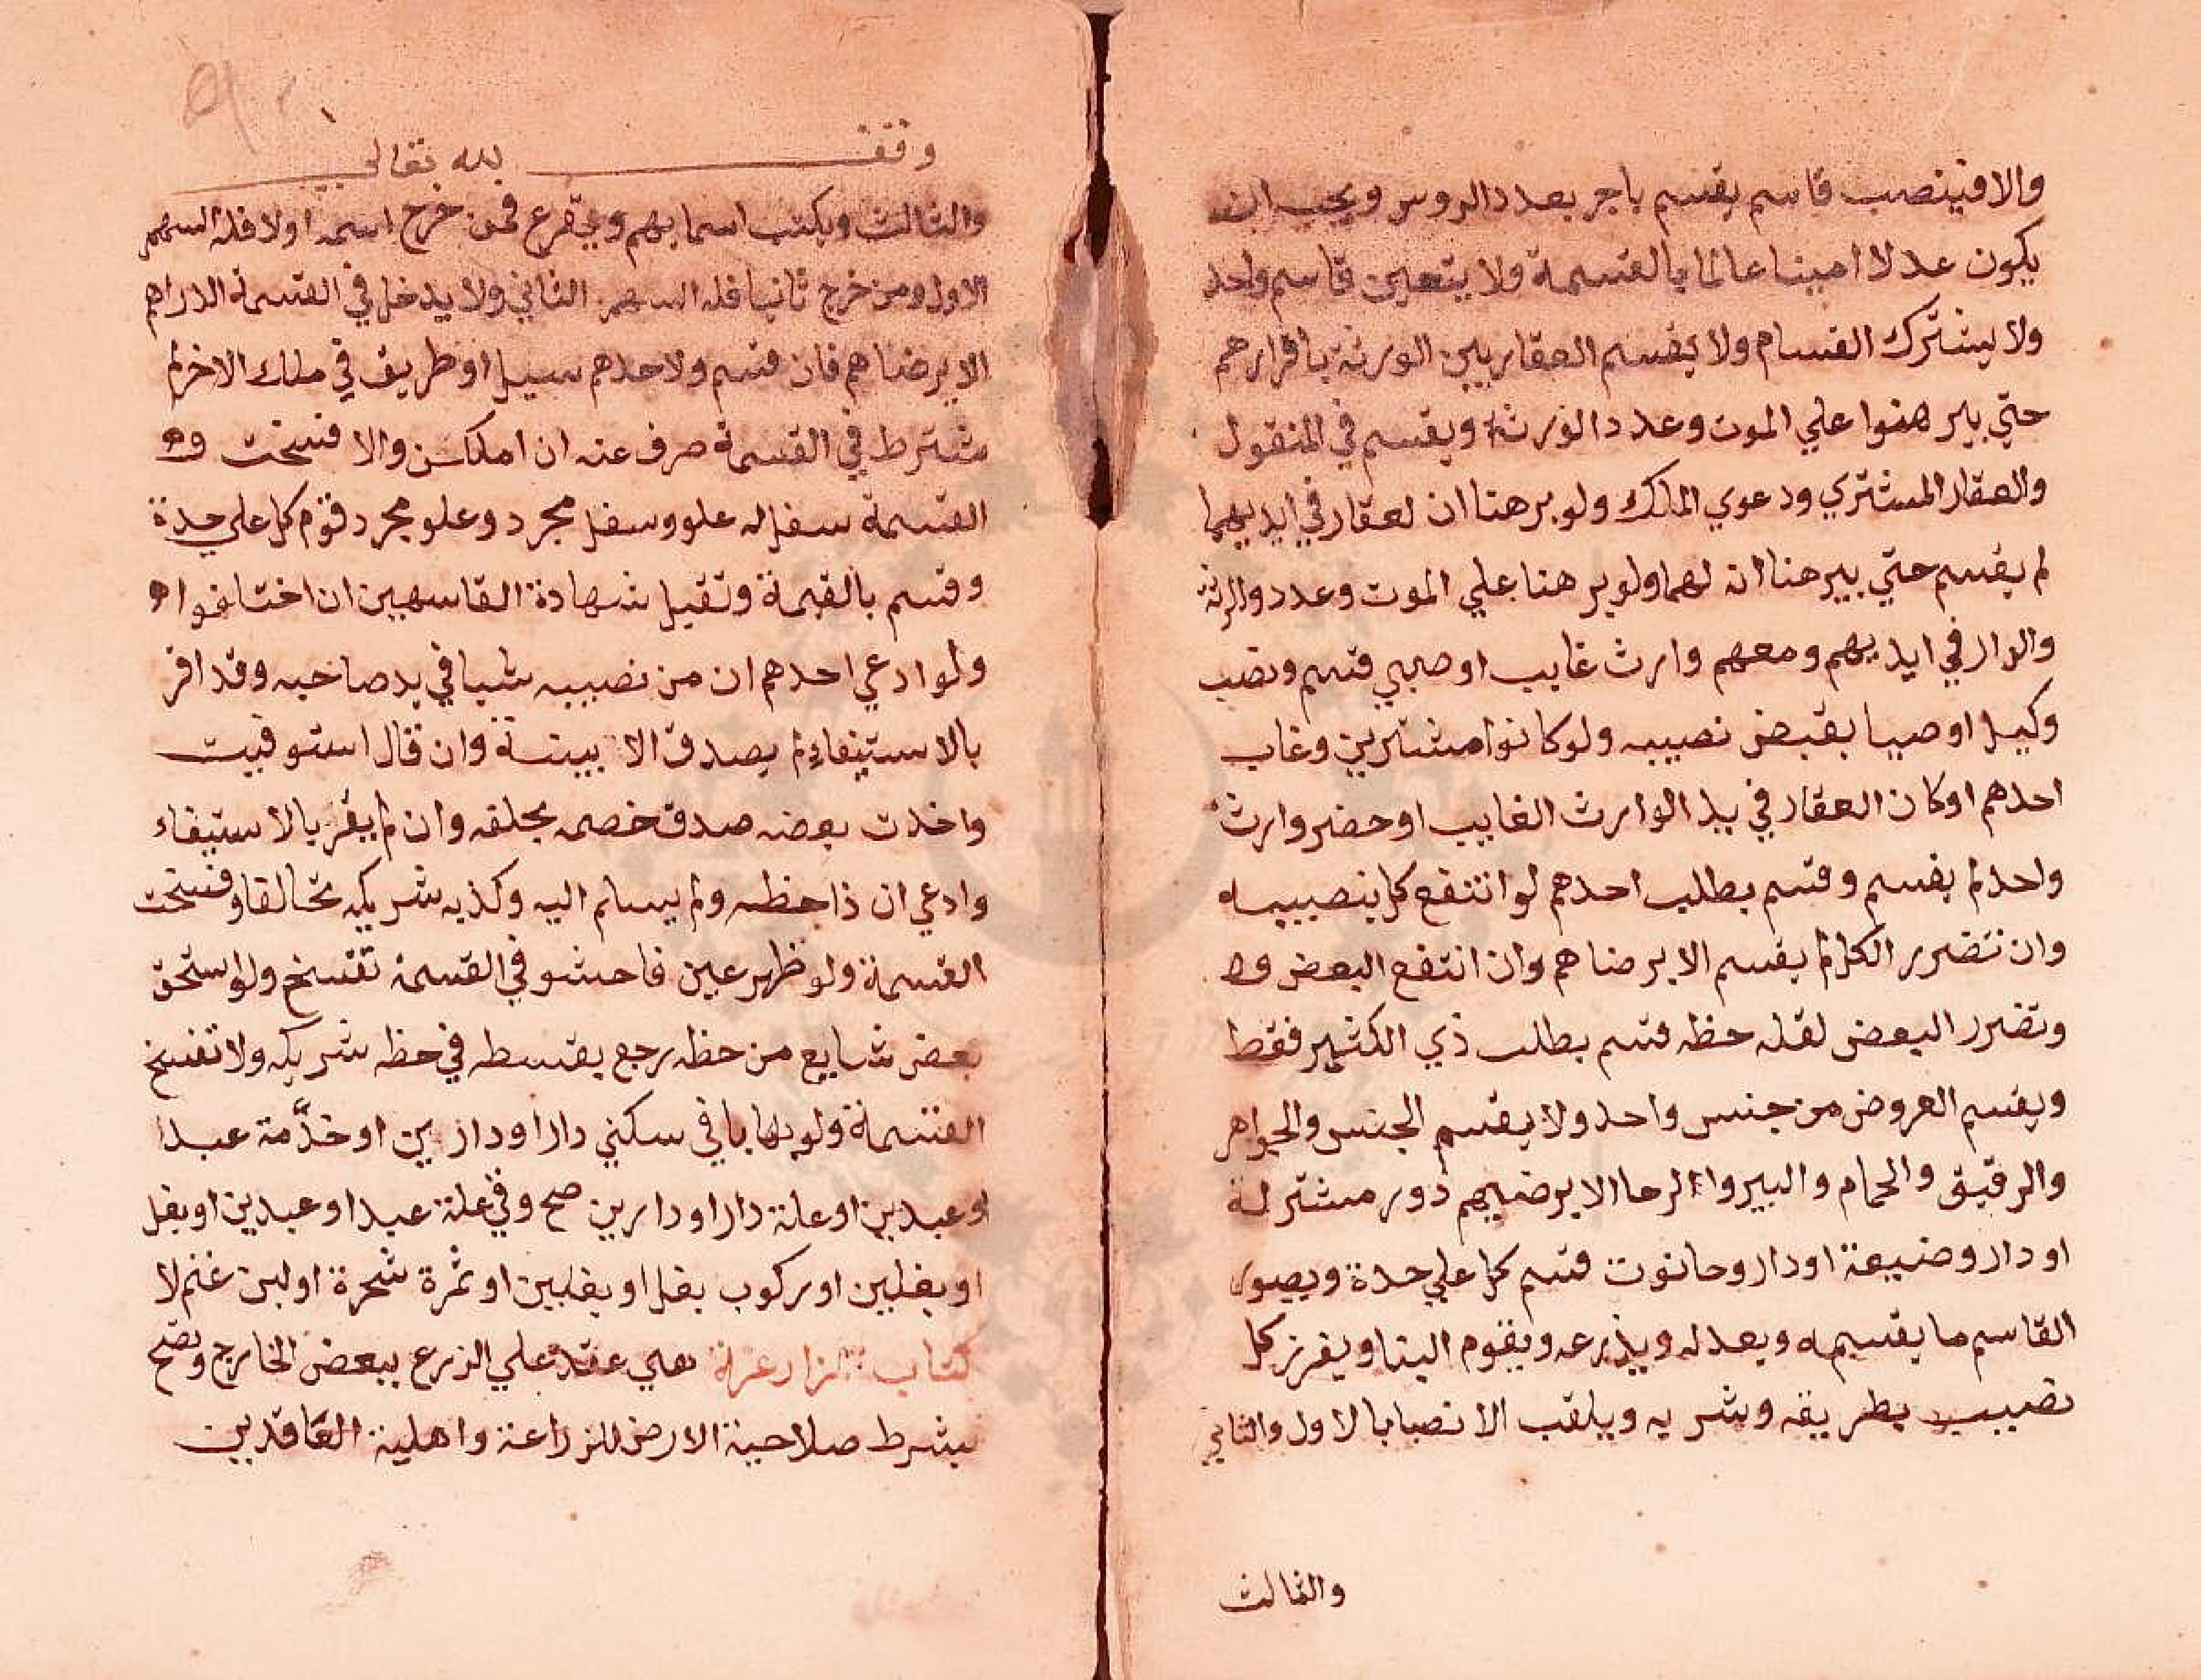 والا فينصب قاسم يقسم باجر بعدد الروس ويجب ان
يكون عدلا امينا عالما بالقسمة ولا يتعين قاسم واحد
ولا يشترك القسام ولا يقسم العقار بين الورثة باقرارهم
حتي يبرهنوا علي الموت وعدد الورثة ويقسم في المنقول
والعقار المشتري ودعوي الملك ولو برهنا ان لعقار في ايديهما
لم يقسم حتي يبرهنا انه لهما ولو برهنا علي الموت وعدد والرثة
والدار في ايديهم ومعهم وارث غايب او صبي قسم ونصب
وكيل او صيا بقبض نصيبه ولو كانوا مشترين وغاب
احدهم او كان العقار في يد الوارث الغايب او حضر وارث
واحد لم يقسم وقسم بطلب احدهم لو انتفع كل بنصيبه
وان تضرر الكل لم يقسم الا برضاهم وان انتفع البعض
وتضرر البعض لقلة حظه قسم بطلب ذي الكثير فقط
ويقسم العروض من جنس واحد ولا يقسم الجنس والجواهر
والرقيق والحمام والبير والرحا الا برضيهم دور مشتركة
او دار وضيعة او دار وحانوت قسم كل علي حدة ويصور
القاسم ما يقسمه ويعدله ويذرعه ويقوم البنا ويفرز كل
نصيب بطريقه وشربه ويلقب الانصبا بالاول والثاني
والثالث
وقف لله تعالي
والثالث ويكتب اسمايهم ويقرع فمن خرج اسمه اولا فله السهم
الاول ومن خرج ثانيا فله السهم الثاني ولا يدخل في القسمة الدراهم
الا برضاهم فان قسم ولاحدهم سيل او طريق في ملك الاخر لم
يشترط في القسمة صرف عنه ان امكن والا فسخت
القسمة سفل له علو وسفل مجرد وعلو مجرد قوم كل علي حدة
وقسم بالقيمة وتقبل شهادة القاسمين ان اختلفوا
ولو ادعي احدهم ان من نصيبه شيا في يد صاحبه وقد اقر
بالاستيفاء لم يصدق الا ببينة وان قال استوفيت
واخذت بعضه صدق خصمه بحلفه وان لم يقر بالاستيفاء
وادعي ان ذا حظه ولم يسلم اليه وكذبه شريكه تحالفا وفسخت
القسمة ولو ظهر عين فاحش في القسمة تفسخ ولو استحق
بعض شايع من حظه رجع بقسطه في حظه شريكه ولا تفسخ
القسمة ولو تهايا في سكني دار او دارين او خدمة عبد
او عبدين او غلة دار او دارين صح وفي غلة عبد او عبدين او بغل
او بغلين او ركوب بغل او بغلين او ثمرة شجرة او لبن غنم لا
كتاب المزارعة هي عقد علي الزرع ببعض الخارج وتصح
بشرط صلاحية الارض للزراعة واهلية العاقدين